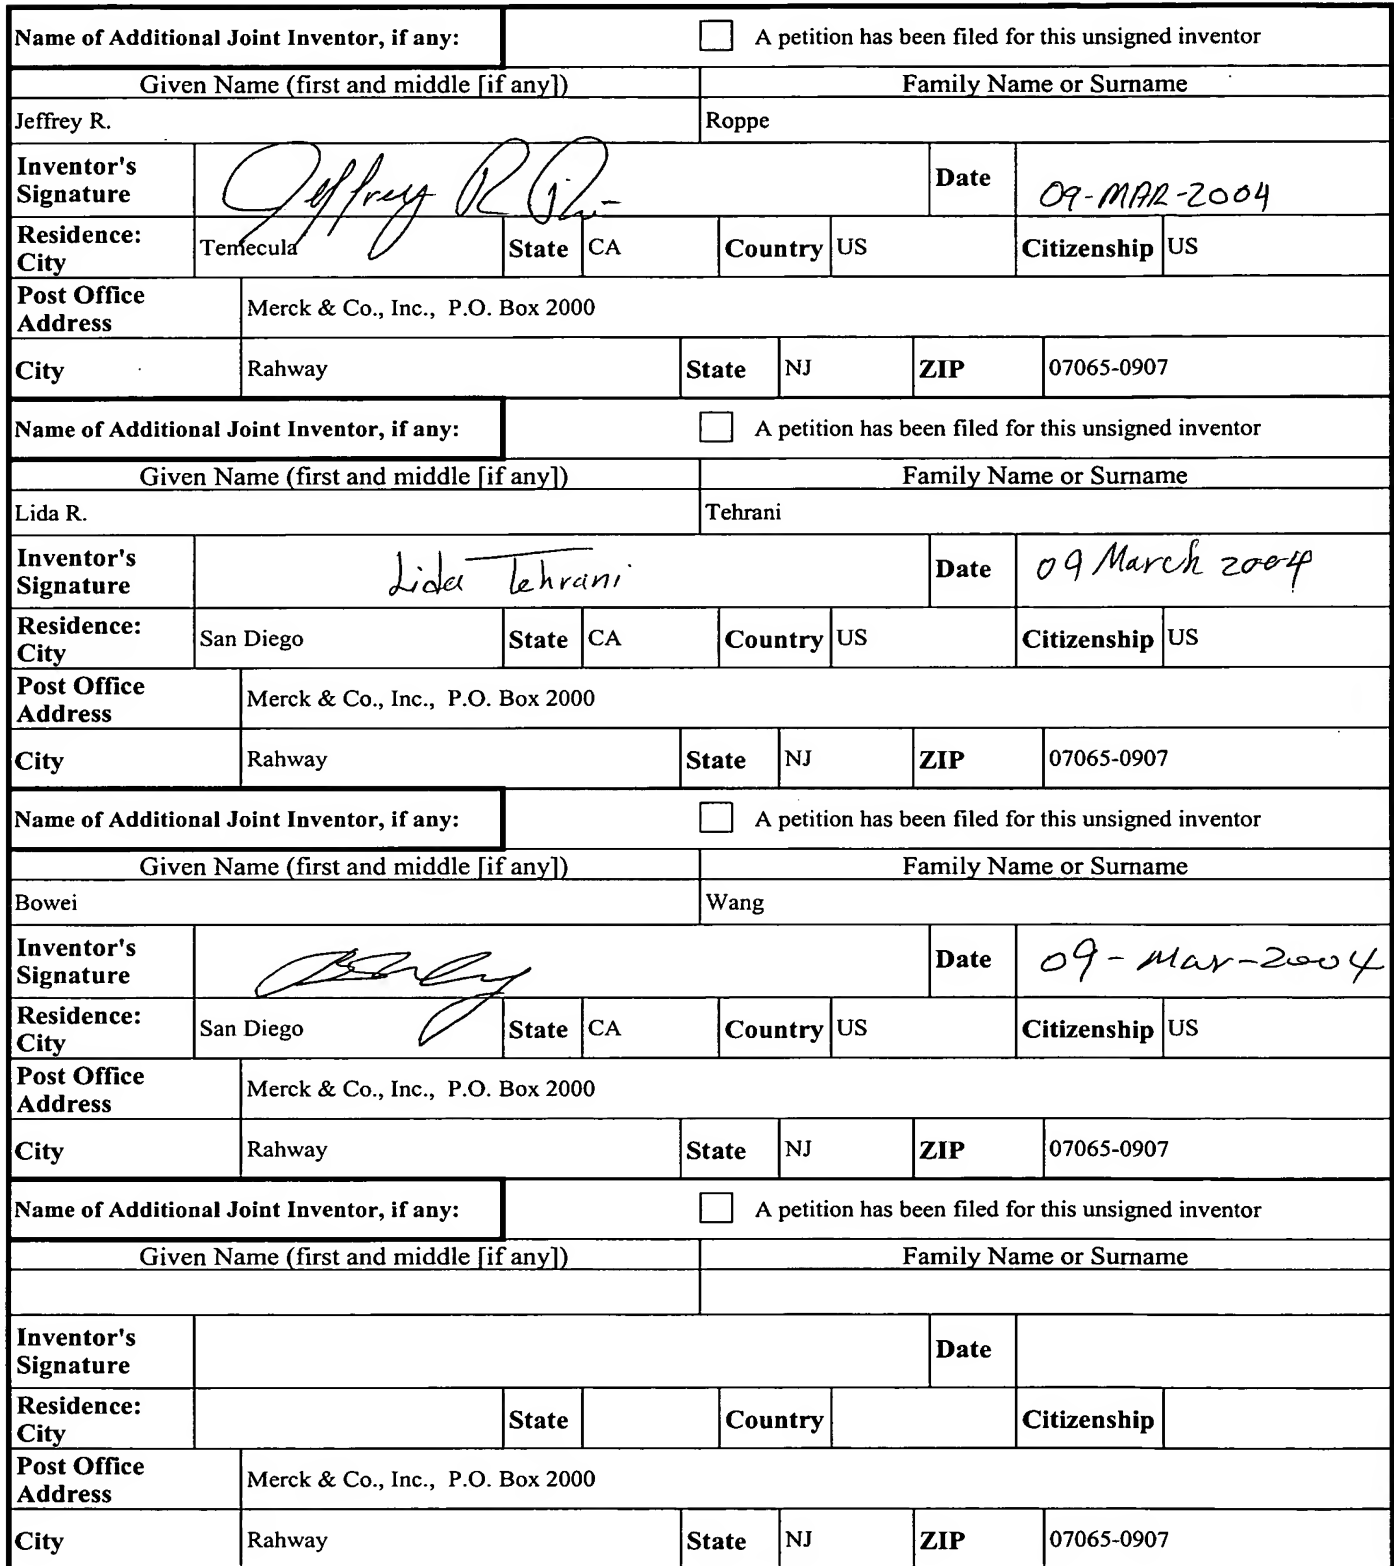 Name of Additional Joint Inventor, if any: A petition has been filed for this unsigned inventor
Given Name (first and middle [if any]) Family Name or Surname
Jeffrey R. Roppe
Inventor's Signature Jeffrey R Date 09-MAR-2004
Residence: City Temecula State CA Country US Citizenship US
Post Office Address Merck & Co., Inc., P.O. Box 2000
City Rahway State NJ ZIP 07065-0907
Name of Additional Joint Inventor, if any: A petition has been filed for this unsigned inventor
Given Name (first and middle [if any]) Family Name or Surname
Lida R. Tehrani
Inventor's Signature Lida Tehrani Date 09 March 2004
Residence: City San Diego State CA Country US Citizenship US
Post Office Address Merck & Co., Inc., P.O. Box 2000
City Rahway State NJ ZIP 07065-0907
Name of Additional Joint Inventor, if any: A petition has been filed for this unsigned inventor
Given Name (first and middle [if any]) Family Name or Surname
Bowei Wang
Inventor's Signature Date 09-Mar-2004
Residence: City San Diego State CA Country US Citizenship US
Post Office Address Merck & Co., Inc., P.O. Box 2000
City Rahway State NJ ZIP 07065-0907
Name of Additional Joint Inventor, if any: A petition has been filed for this unsigned inventor
Given Name (first and middle [if any]) Family Name or Surname
Inventor's Signature Date
Residence: City State Country Citizenship
Post Office Address Merck & Co., Inc., P.O. Box 2000
City Rahway State NJ ZIP 07065-0907